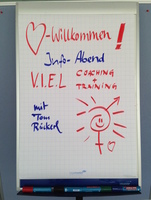 -Willkommen!
Info-Abend
V.I.E.L COACHING
+
TRAINING
mit
Tom
Rückerl